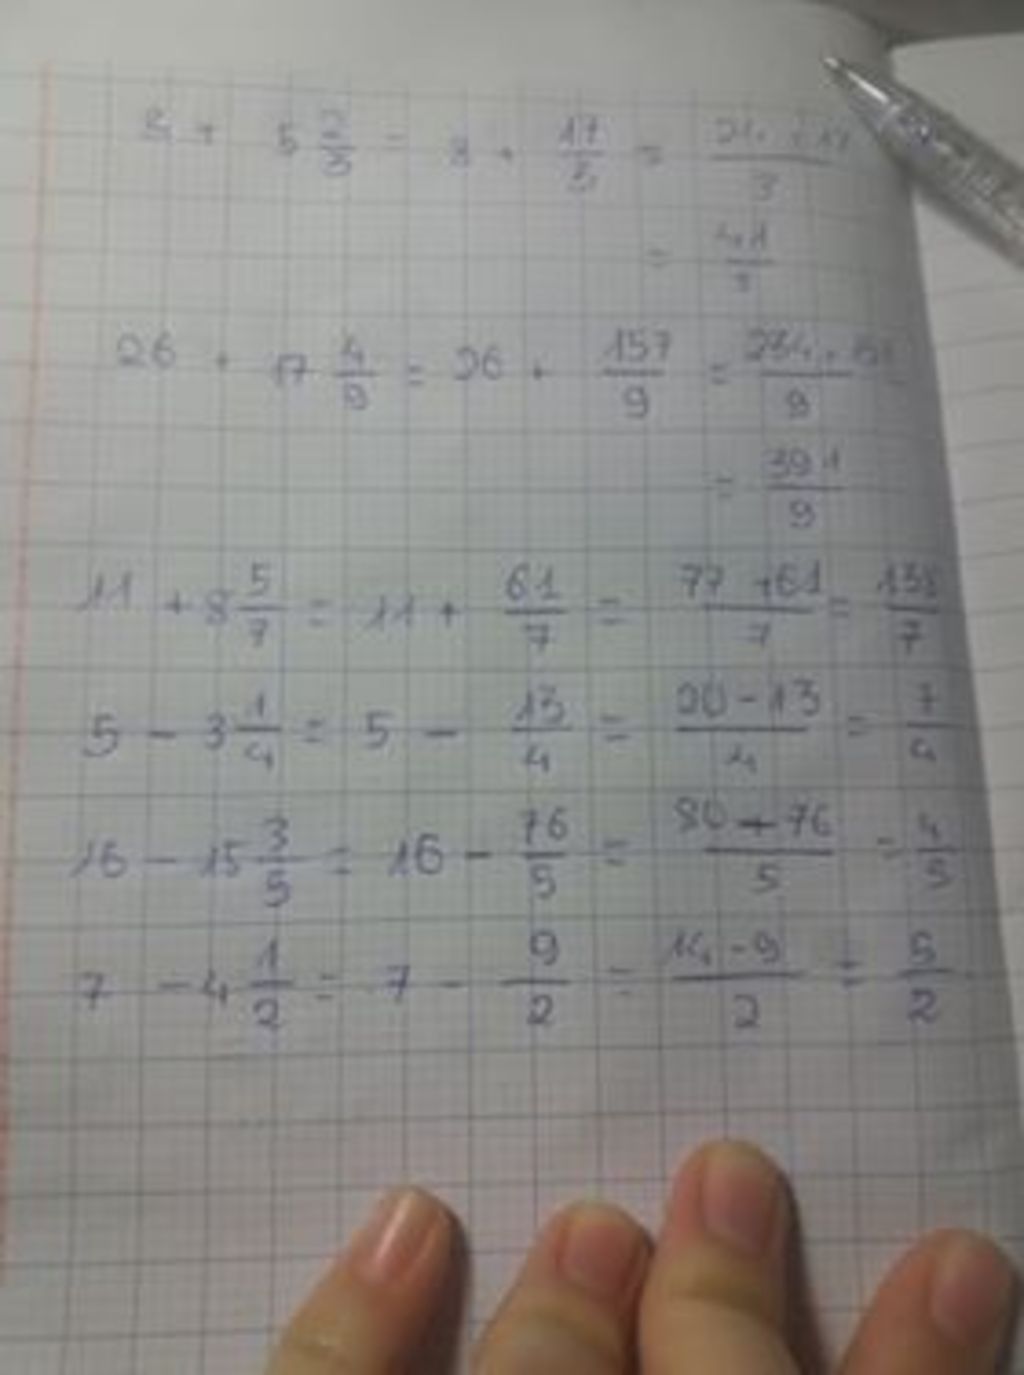 8 + 5 2/3 = 8 + 17/3 = 24 + 17/3
= 41/3
26 + 17 4/9 = 26 + 157/9 = 234 + /9 =
= 391/9
11 + 8 5/7 = 11 + 61/7 = 77 + 61/7 = 138/7
5 - 3 1/4 = 5 - 13/4 = 20 - 13/4 = 7/4
16 - 15 3/5 = 16 - 76/5 = 80 - 76/5 = 4/5
7 - 4 1/2 = 7 - 9/2 = 14 - 9/2 = 5/2